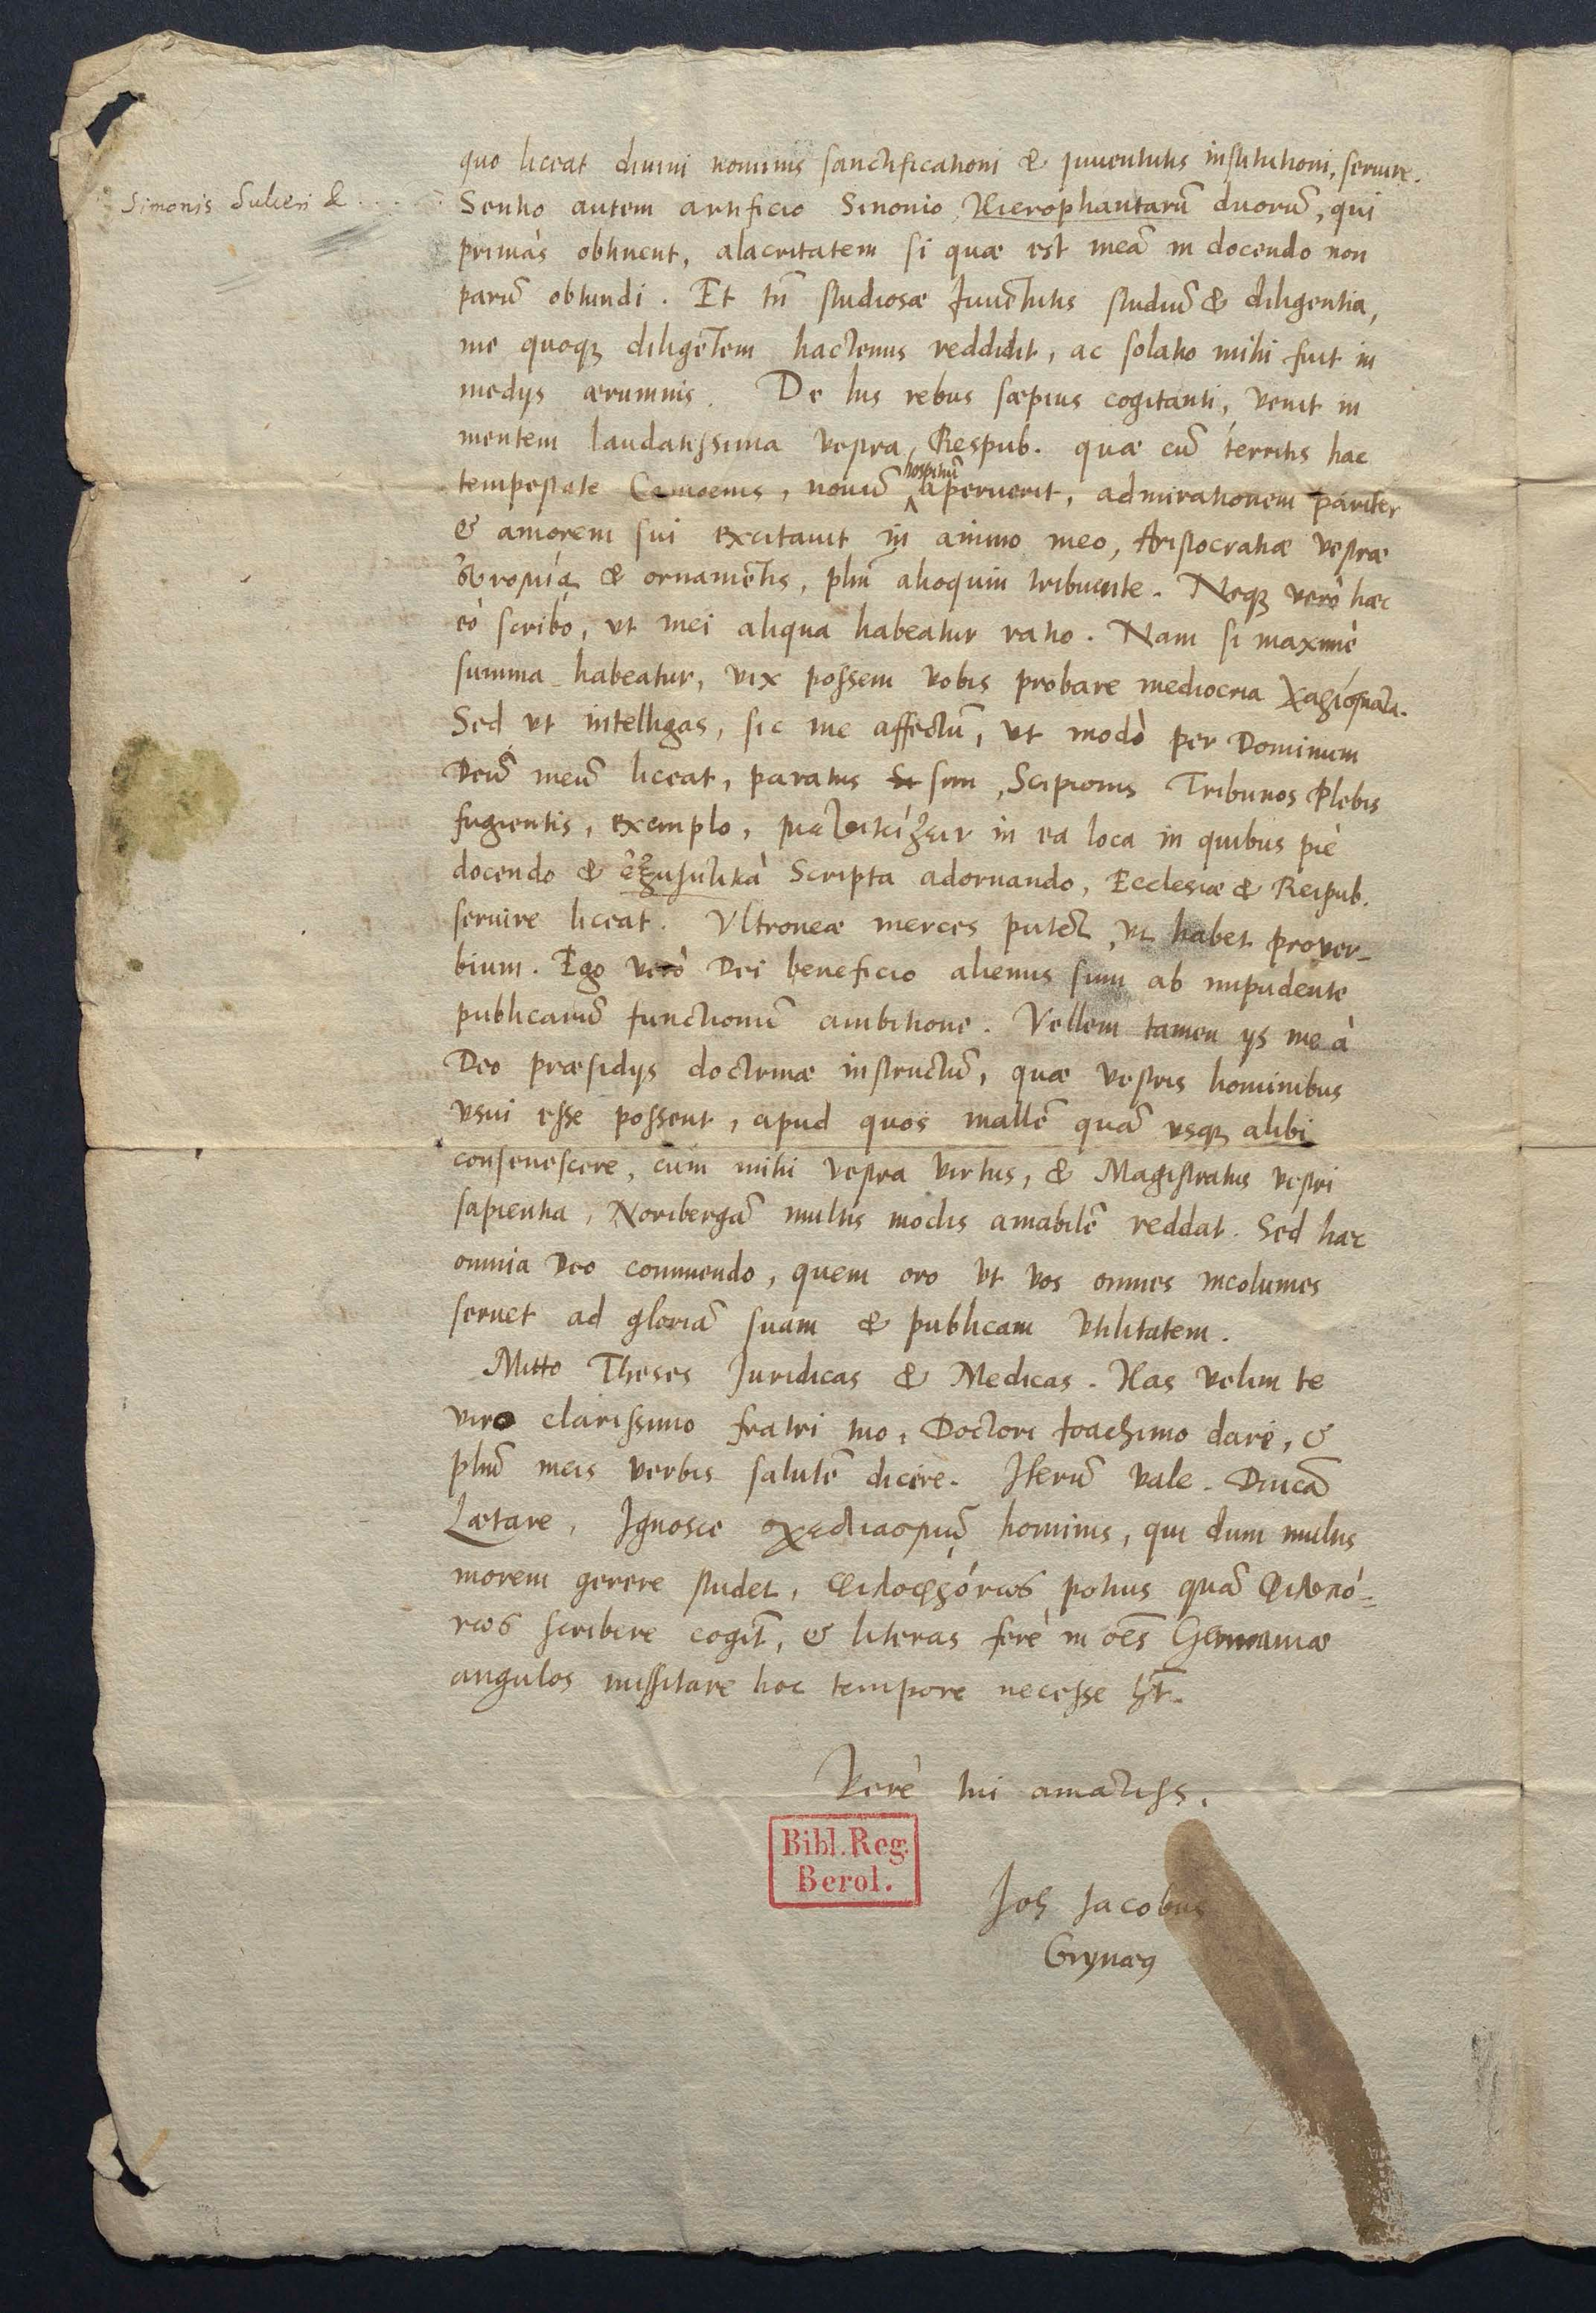 quo liceat divini nominis sanctificationi & juventutis institutioni, servire.
Simonis Sulceri &
Sentio autem artificio Sinonio Hierophantarū duorū, qui
primas obtinent, alacritatem si quæ est meā in docendo non
parū obtundi. Et tn̄ studiosæ Juvētutis studiū & diligentia,
me quoqȝ diligētem hactenus reddidit, ac solatio mihi fuit in
medijs ærumnis. De his rebus sæpius cogitanti, venit in
mentem laudatissima vestra Respub. quæ cū territis hac
tempestate Camoenis, novū hospitiū aperuerit, admirationem pariter
& amorem sui excitavit in animo meo, Aristocratiæ vestræ
εὐνομίᾳ & ornamētis, plm̄ alioquin tribuente. Neqȝ verò hæc
eò scribo, ut mei aliqua habeatur ratio. Nam si maximè
summa habeatur, vix possem vobis probare mediocria χαρίσματα.
Sed ut intelligas, sic me affectū, ut modò per Dominum
Deū meū liceat, paratus sim, Scipionis Tribunos Plebis
fugientis, exemplo, μετοικίζειν in ea loca in quibus piè
docendo & ἐξηγητικὰ Scripta adornando, Ecclesiæ & Reipub.
servire liceat. Ultroneæ merces putēt, ut habet prover-
bium. Ego verò Dei beneficio alienus sum ab impudente
publicarū functionū ambitione. Vellem tamen ijs me à
Deo præsidijs doctrinæ instructū, quæ vestris hominibus
usui esse possent, apud quos mallē quā usqȝ alibi
consenescere, cùm mihi vestra virtus, & Magistratus vestri
sapientia, Noribergā multis modis amabilē reddat. Sed hæc
omnia Deo commendo, quem oro ut vos omnes incolumes
servet ad gloriā suam & publicam utilitatem.
Mitto Theses Juridicas & Medicas. Has velim te
viro clarissimo fratri tuo, Doctori Joachimo dare, &
plm̄ meis verbis salutē dicere. Iterū vale. Dn̄icā
Lætare. Ignosce σχεδιασμῷ hominis, qui dum multis
morem gerere studet, φιλοφρόνως potius quā φιλοπό-
νως scribere cogit̄, & literas ferè in oēs Germaniæ
angulos missitare hoc tempore necesse ht̄.
Verè tui amātiss.
Bibl. Reg.
Berol.
Joh Jacobus
Grynæꝰ